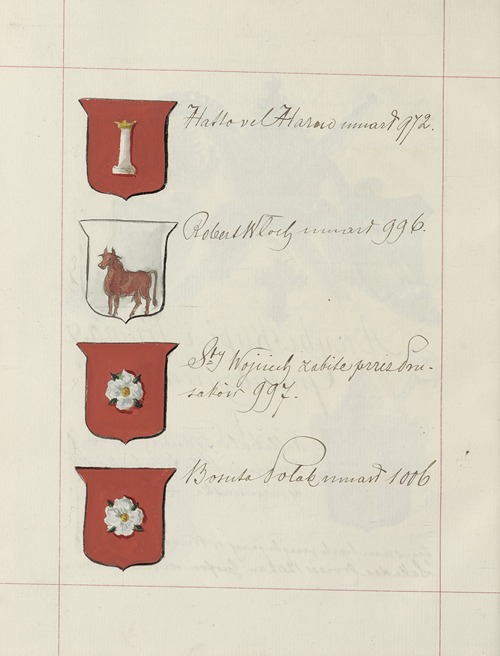 Hatto vel Harno umarł 972.
Robert Włoch umarł 996.
Sty Wojciech zabity przez Pru-
saków 997.
Bosuta Polak umarł 1006